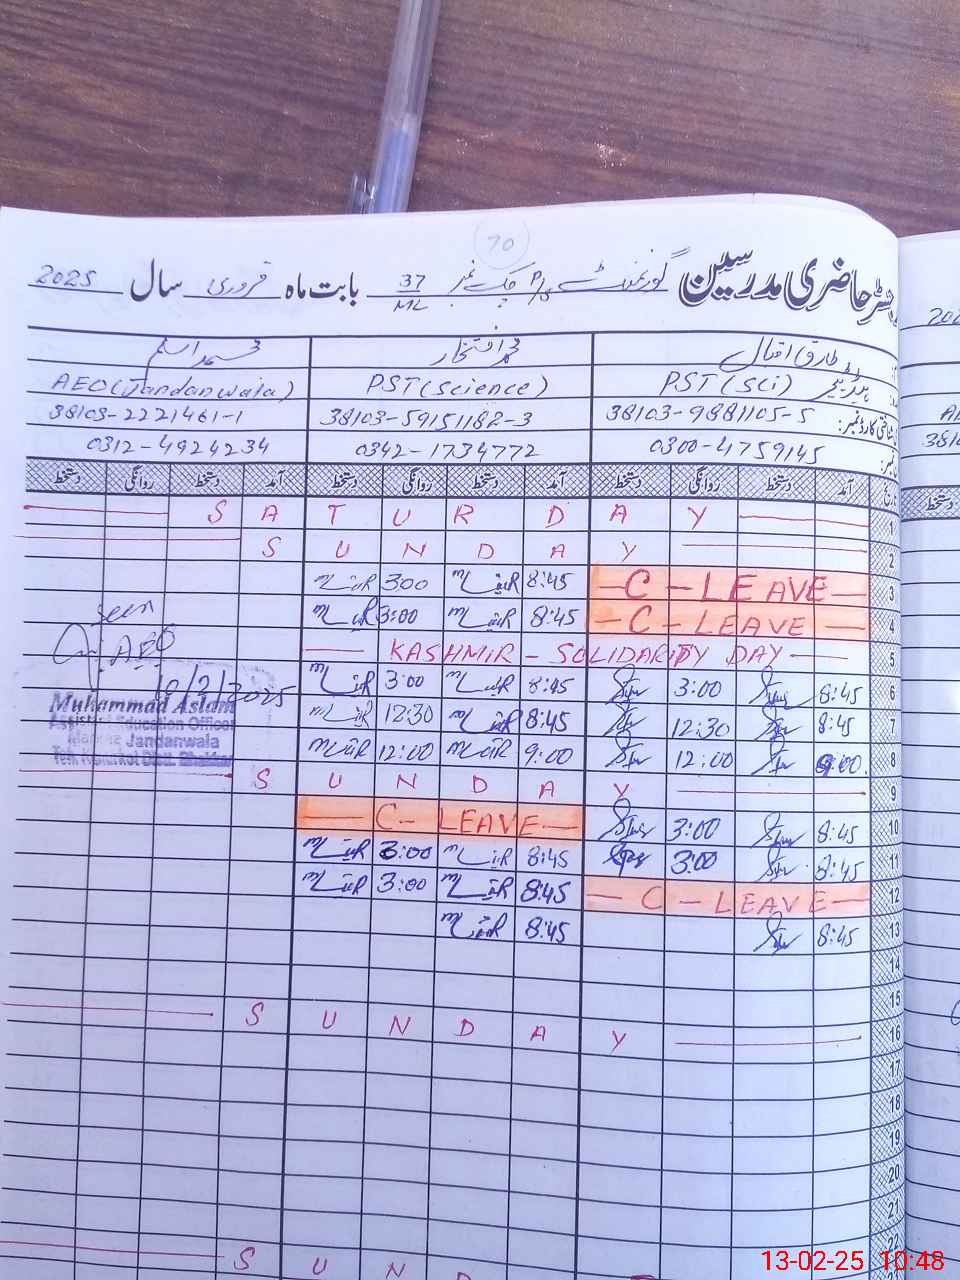 70
رجسٹر حاضری مدرسین گورنمنٹ P/S چک نمبر 37 ML بابت ماہ فروری سال 2025
طارق اقبال محمد افتخار محمد اسلم
PST (Sci) PST (Science) AEO (Jandanwala)
شناختی کارڈ نمبر: 38103-9881105-5 38103-59151182-3 38103-2221461-1
0300-4759145 0342-1734772 0312-4924234
آمد دستخط روانگی دستخط آمد دستخط روانگی دستخط آمد دستخط روانگی دستخط
1 SATURDAY
2 SUNDAY
3 C-LEAVE 8:45 3:00
4 C-LEAVE 8:45 3:00
5 KASHMIR - SOLIDARITY DAY
6 8:45 3:00 8:45 3:00
7 8:45 12:30 8:45 12:30
8 9:00 12:00 9:00 12:00
9 SUNDAY
10 8:45 3:00 C-LEAVE
11 8:45 3:00 8:45 3:00
12 C-LEAVE 8:45 3:00
13 8:45 8:45
14
15
16 SUNDAY
17
18
19
20
21
22
SUND
Seen
AEO
10/2/2025
Muhammad Aslam
Assistant Education Officer
Markaz Jandanwala
2025
38103
دستخط
13-02-25 10:48